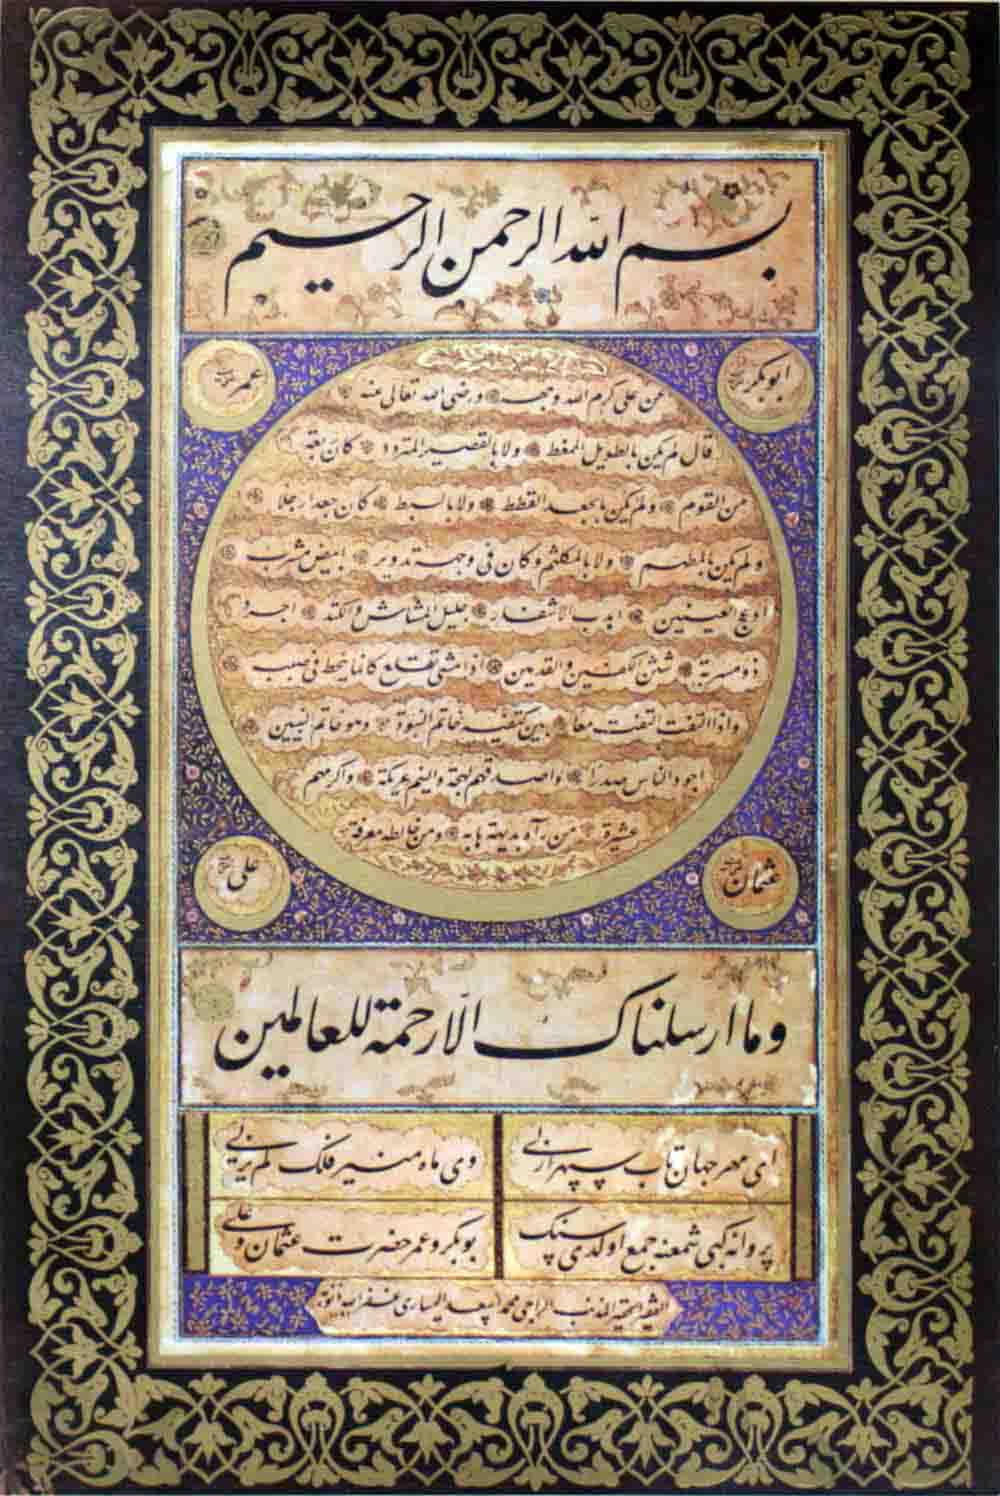 بسم الله الرحمن الرحيم
ابوبكر
عمر
عن علي كرم الله وجهه ورضى الله تعالى عنه
قال لم يكن بالطويل الممغط ولا بالقصير المتردد كان ربعة
من القوم ولم يكن بالجعد القطط ولا بالسبط كان جعدا رجلا
ولم يكن بالمطهم ولا بالمكلثم وكان في وجهه تدوير ابيض مشرب
ادعج العينين اهدب الاشفار جليل المشاش والكتد اجرد
ذو مسربة شثن الكفين والقدمين اذا مشى تقلع كانما ينحط في صبب
واذا التفت التفت معا بين كتفيه خاتم النبوة وهو خاتم النبيين
اجود الناس صدرا واصدقهم لهجة والينهم عريكة واكرمهم
عشرة من رآه بديهة هابه ومن خالطه معرفة
عثمان
على
وما ارسلناك الا رحمة للعالمين
اى مهر جهان تاب سپهر ازلى وى ماه منير فلك لم يزلى
پروانه كبى شمعنه جمع اولدى سنك بوبكر و عمر حضرت عثمان و على
الفقير الحقير المذنب الراجى محمد اسعد اليسارى غفر الله ذنوبه